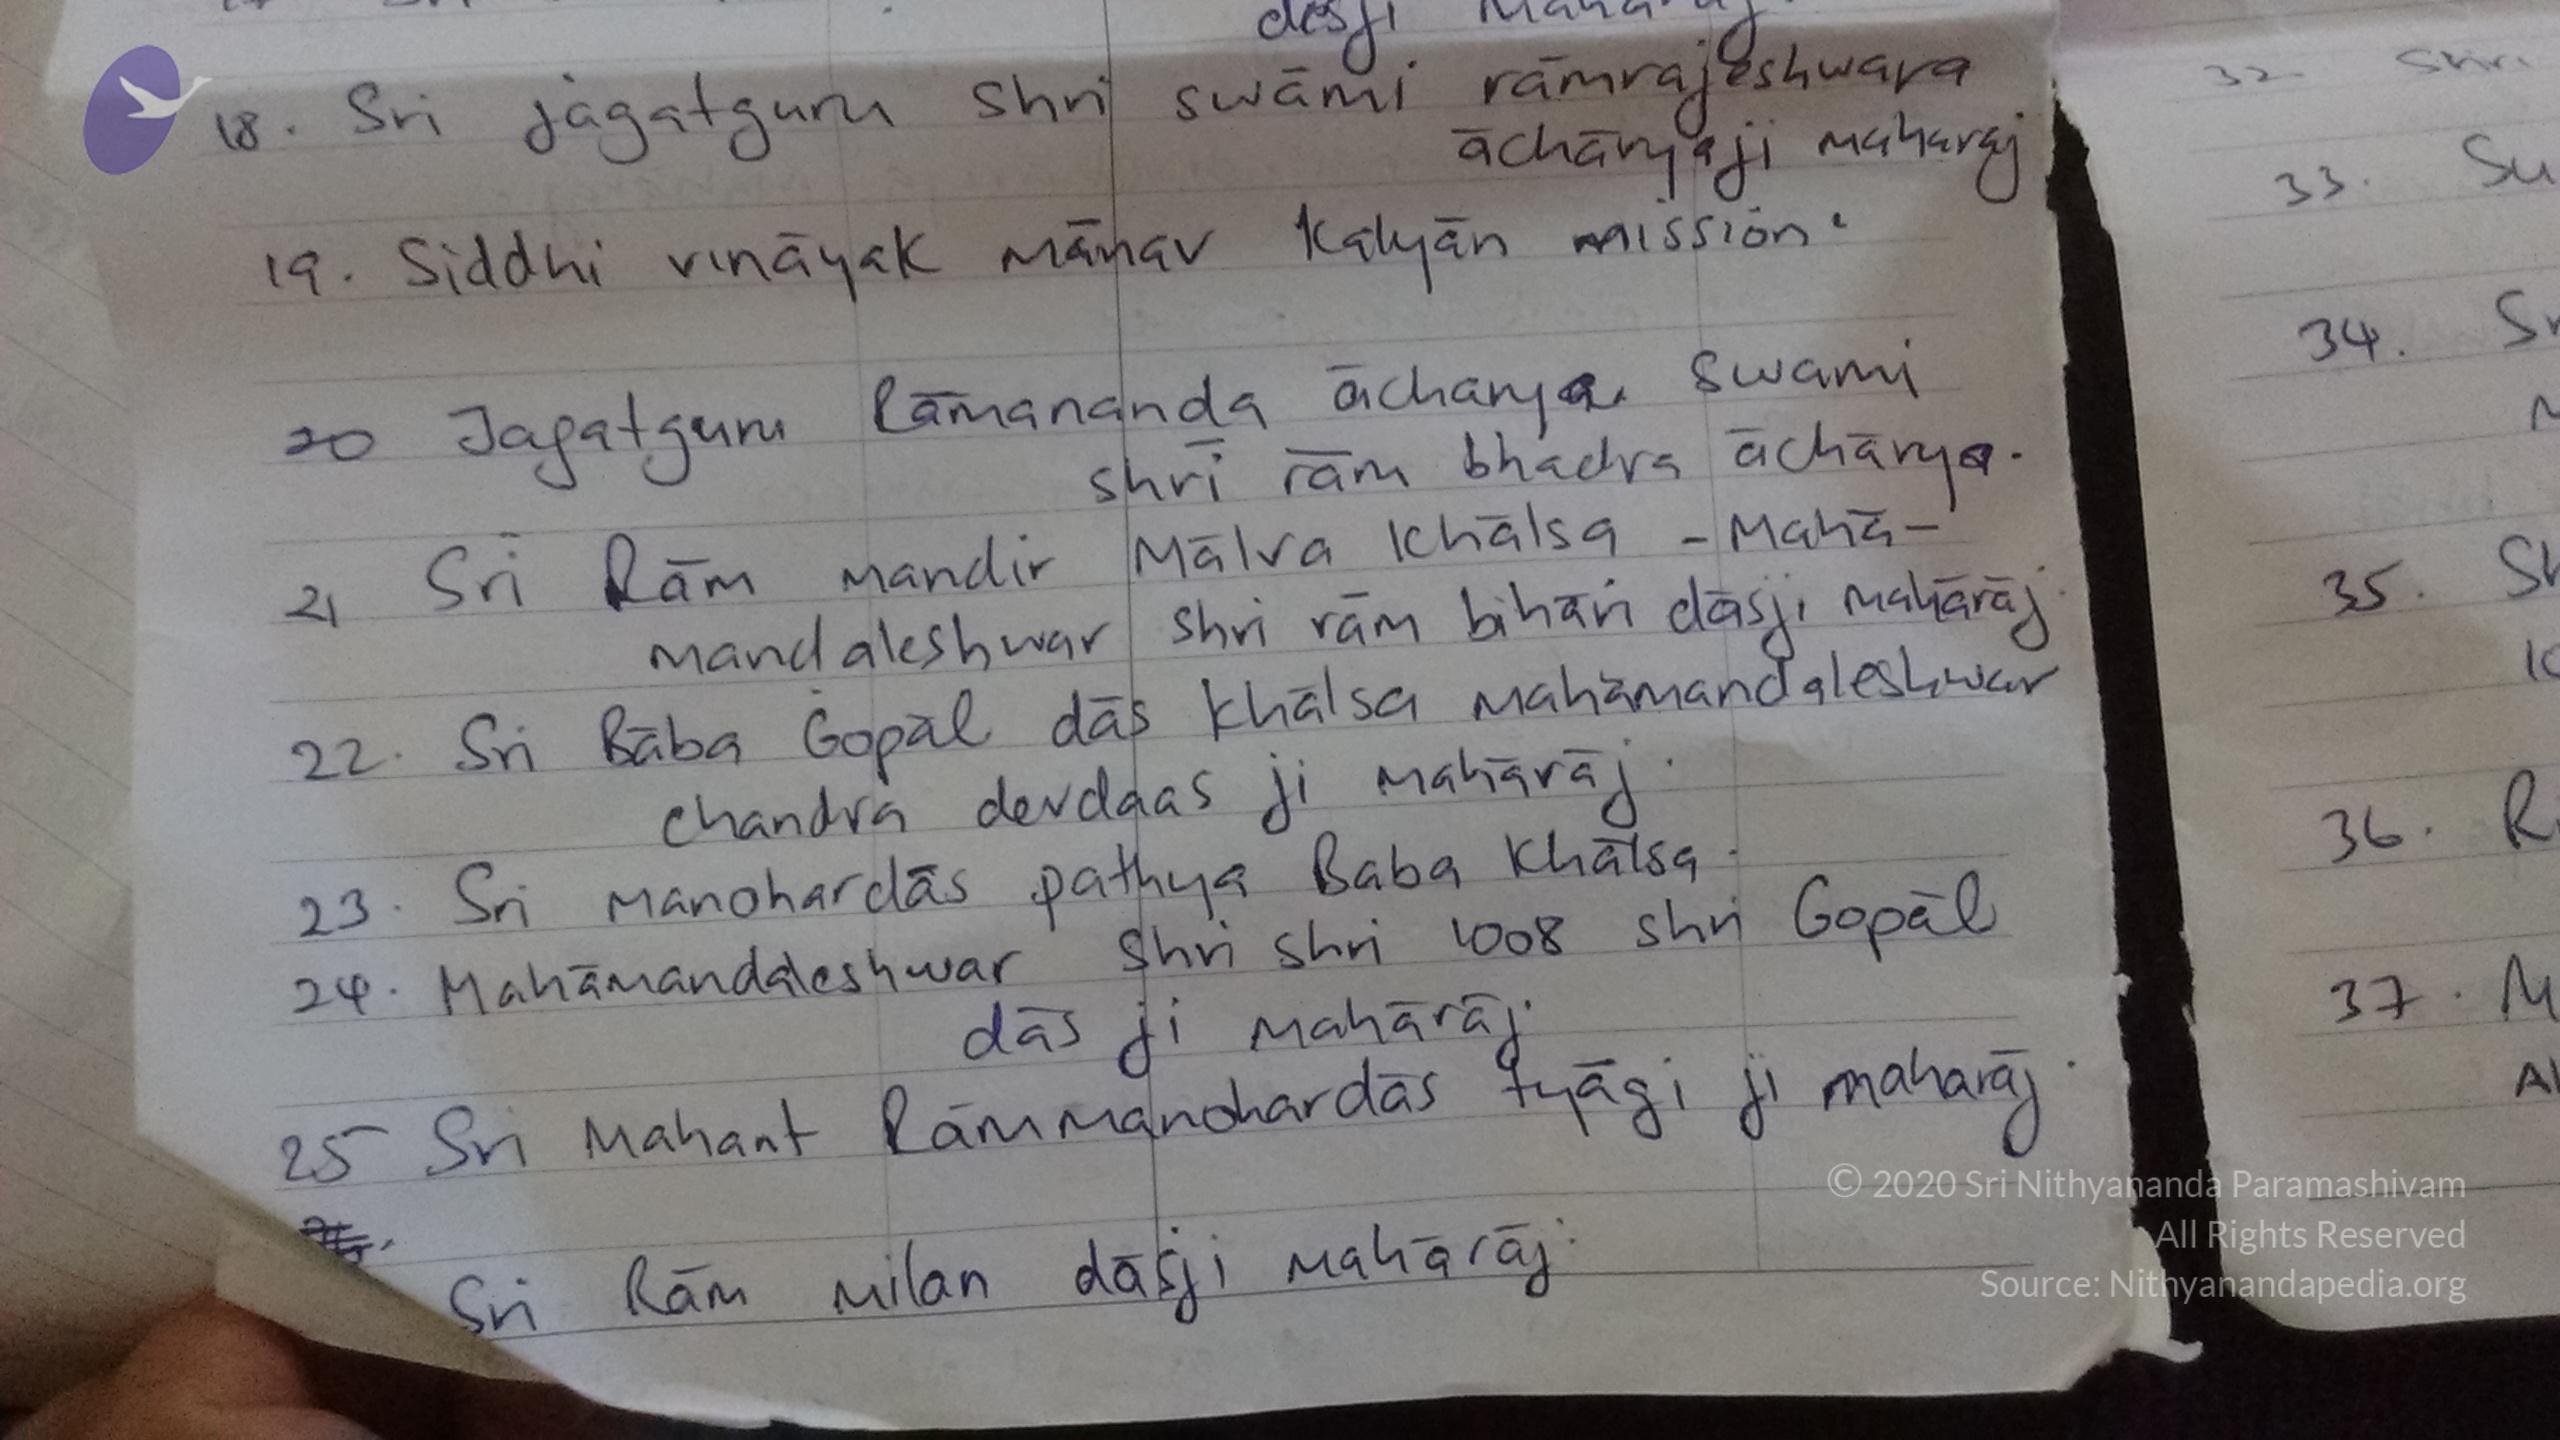 dasji Maharaj.
18. Sri jagatguru Shri swāmi rāmrajeshwara
āchāryaji maharaj
19. Siddhi vināyak mānav Kalyān mission.
20 Jagatguru Rāmananda āchārya swami
shrī rām bhadra āchārya.
21 Sri Rām mandir Mālva Khālsa - Mahā-
mandaleshwar shri rām bihāri dāsji mahārāj.
22. Sri Bāba Gopāl dās Khālsa mahāmandaleshwar
chandra devdaas ji mahārāj.
23. Sri manohardās pathya Baba Khālsa.
24. Mahāmandaleshwar Shri shri 1008 shri Gopāl
dās ji mahārāj.
25 Sri Mahant Rāmmanohardās tyāgi ji maharāj.
Sri Rām milan dāsji mahārāj.
32. Shri
33. Su
34.
35. Sh
36. Ri
37. M
© 2020 Sri Nithyananda Paramashivam
All Rights Reserved
Source: Nithyanandapedia.org